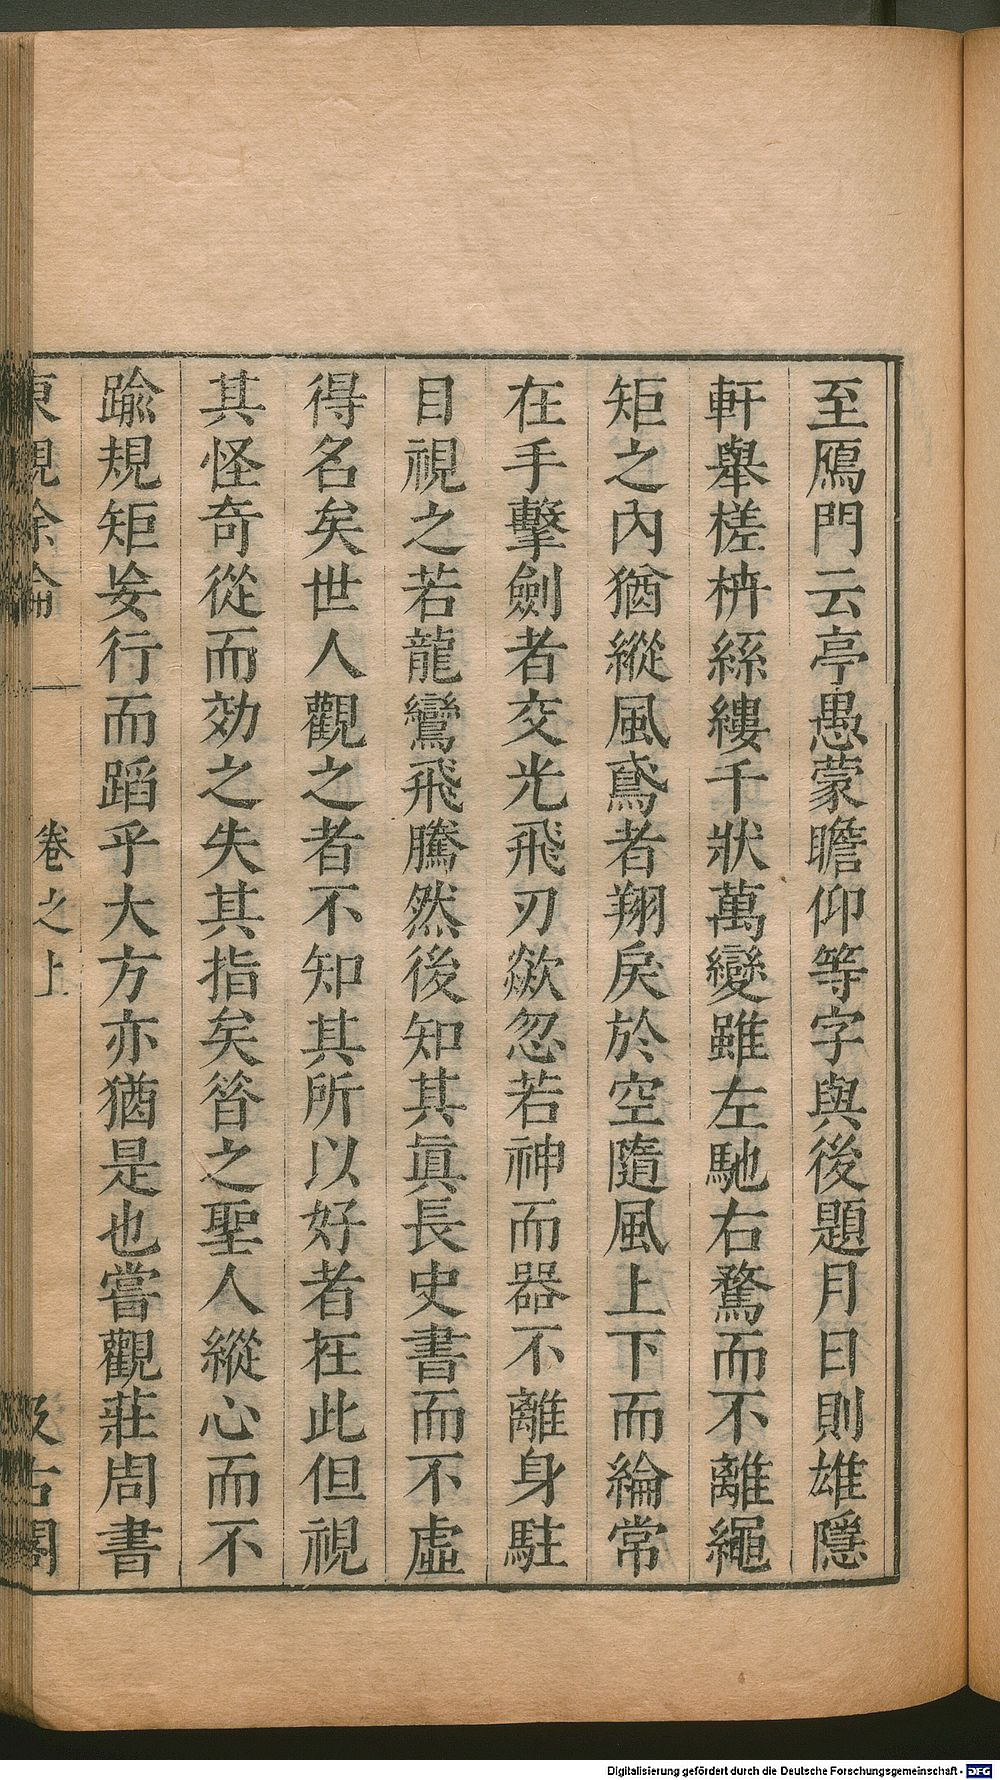 至鴈門云亭愚蒙瞻仰等字與後題月日則雄隱
軒舉槎枿絲縷千狀萬變雖左馳右騖而不離繩
矩之內猶縱風鳶者翔戾於空隨風上下而綸常
在手擊劍者交光飛刃歘忽若神而器不離身駐
目視之若龍鸞飛騰然後知其眞長史書而不虛
得名矣世人觀之者不知其所以好者在此但視
其怪奇從而効之失其指矣昝之聖人縱心而不
踰規矩妄行而蹈乎大方亦猶是也嘗觀莊周書
東觀餘論
卷之上
汲古閣
Digitalisierung gefördert durch die Deutsche Forschungsgemeinschaft - DFG